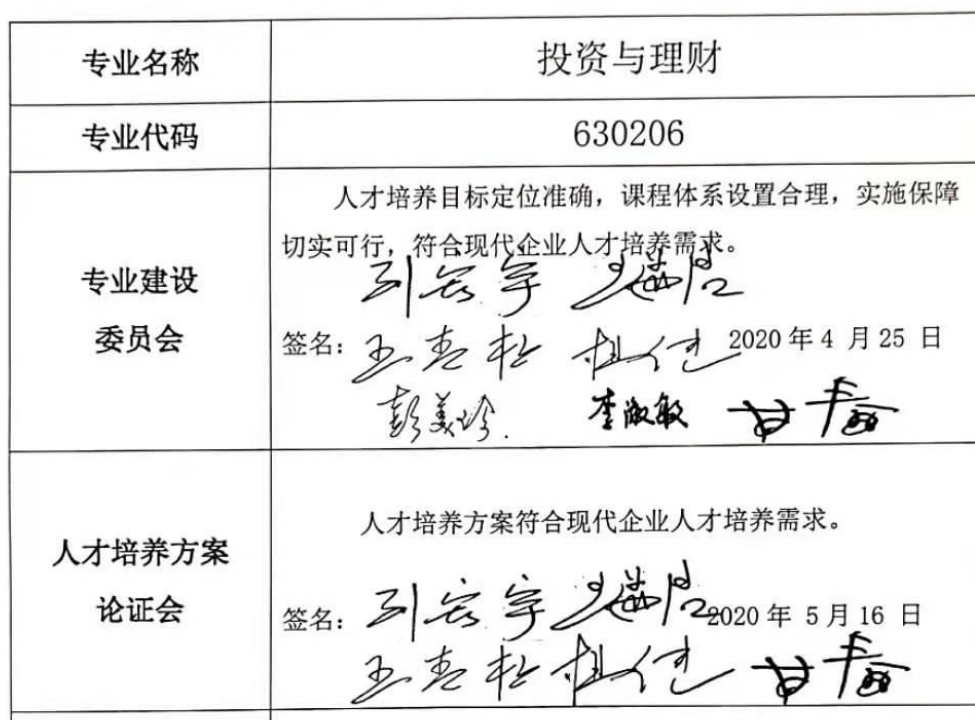 专业名称
投资与理财
专业代码
630206
专业建设
委员会
人才培养目标定位准确，课程体系设置合理，实施保障
切实可行，符合现代企业人才培养需求。
签名：
2020 年 4 月 25 日
彭美玲
李淑敏
人才培养方案
论证会
人才培养方案符合现代企业人才培养需求。
签名：
2020 年 5 月 16 日